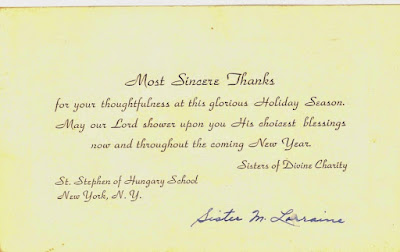 Most Sincere Thanks
for your thoughtfulness at this glorious Holiday Season.
May our Lord shower upon you His choicest blessings
now and throughout the coming New Year.
Sisters of Divine Charity
St. Stephen of Hungary School
New York, N. Y.
Sister M. Lorraine